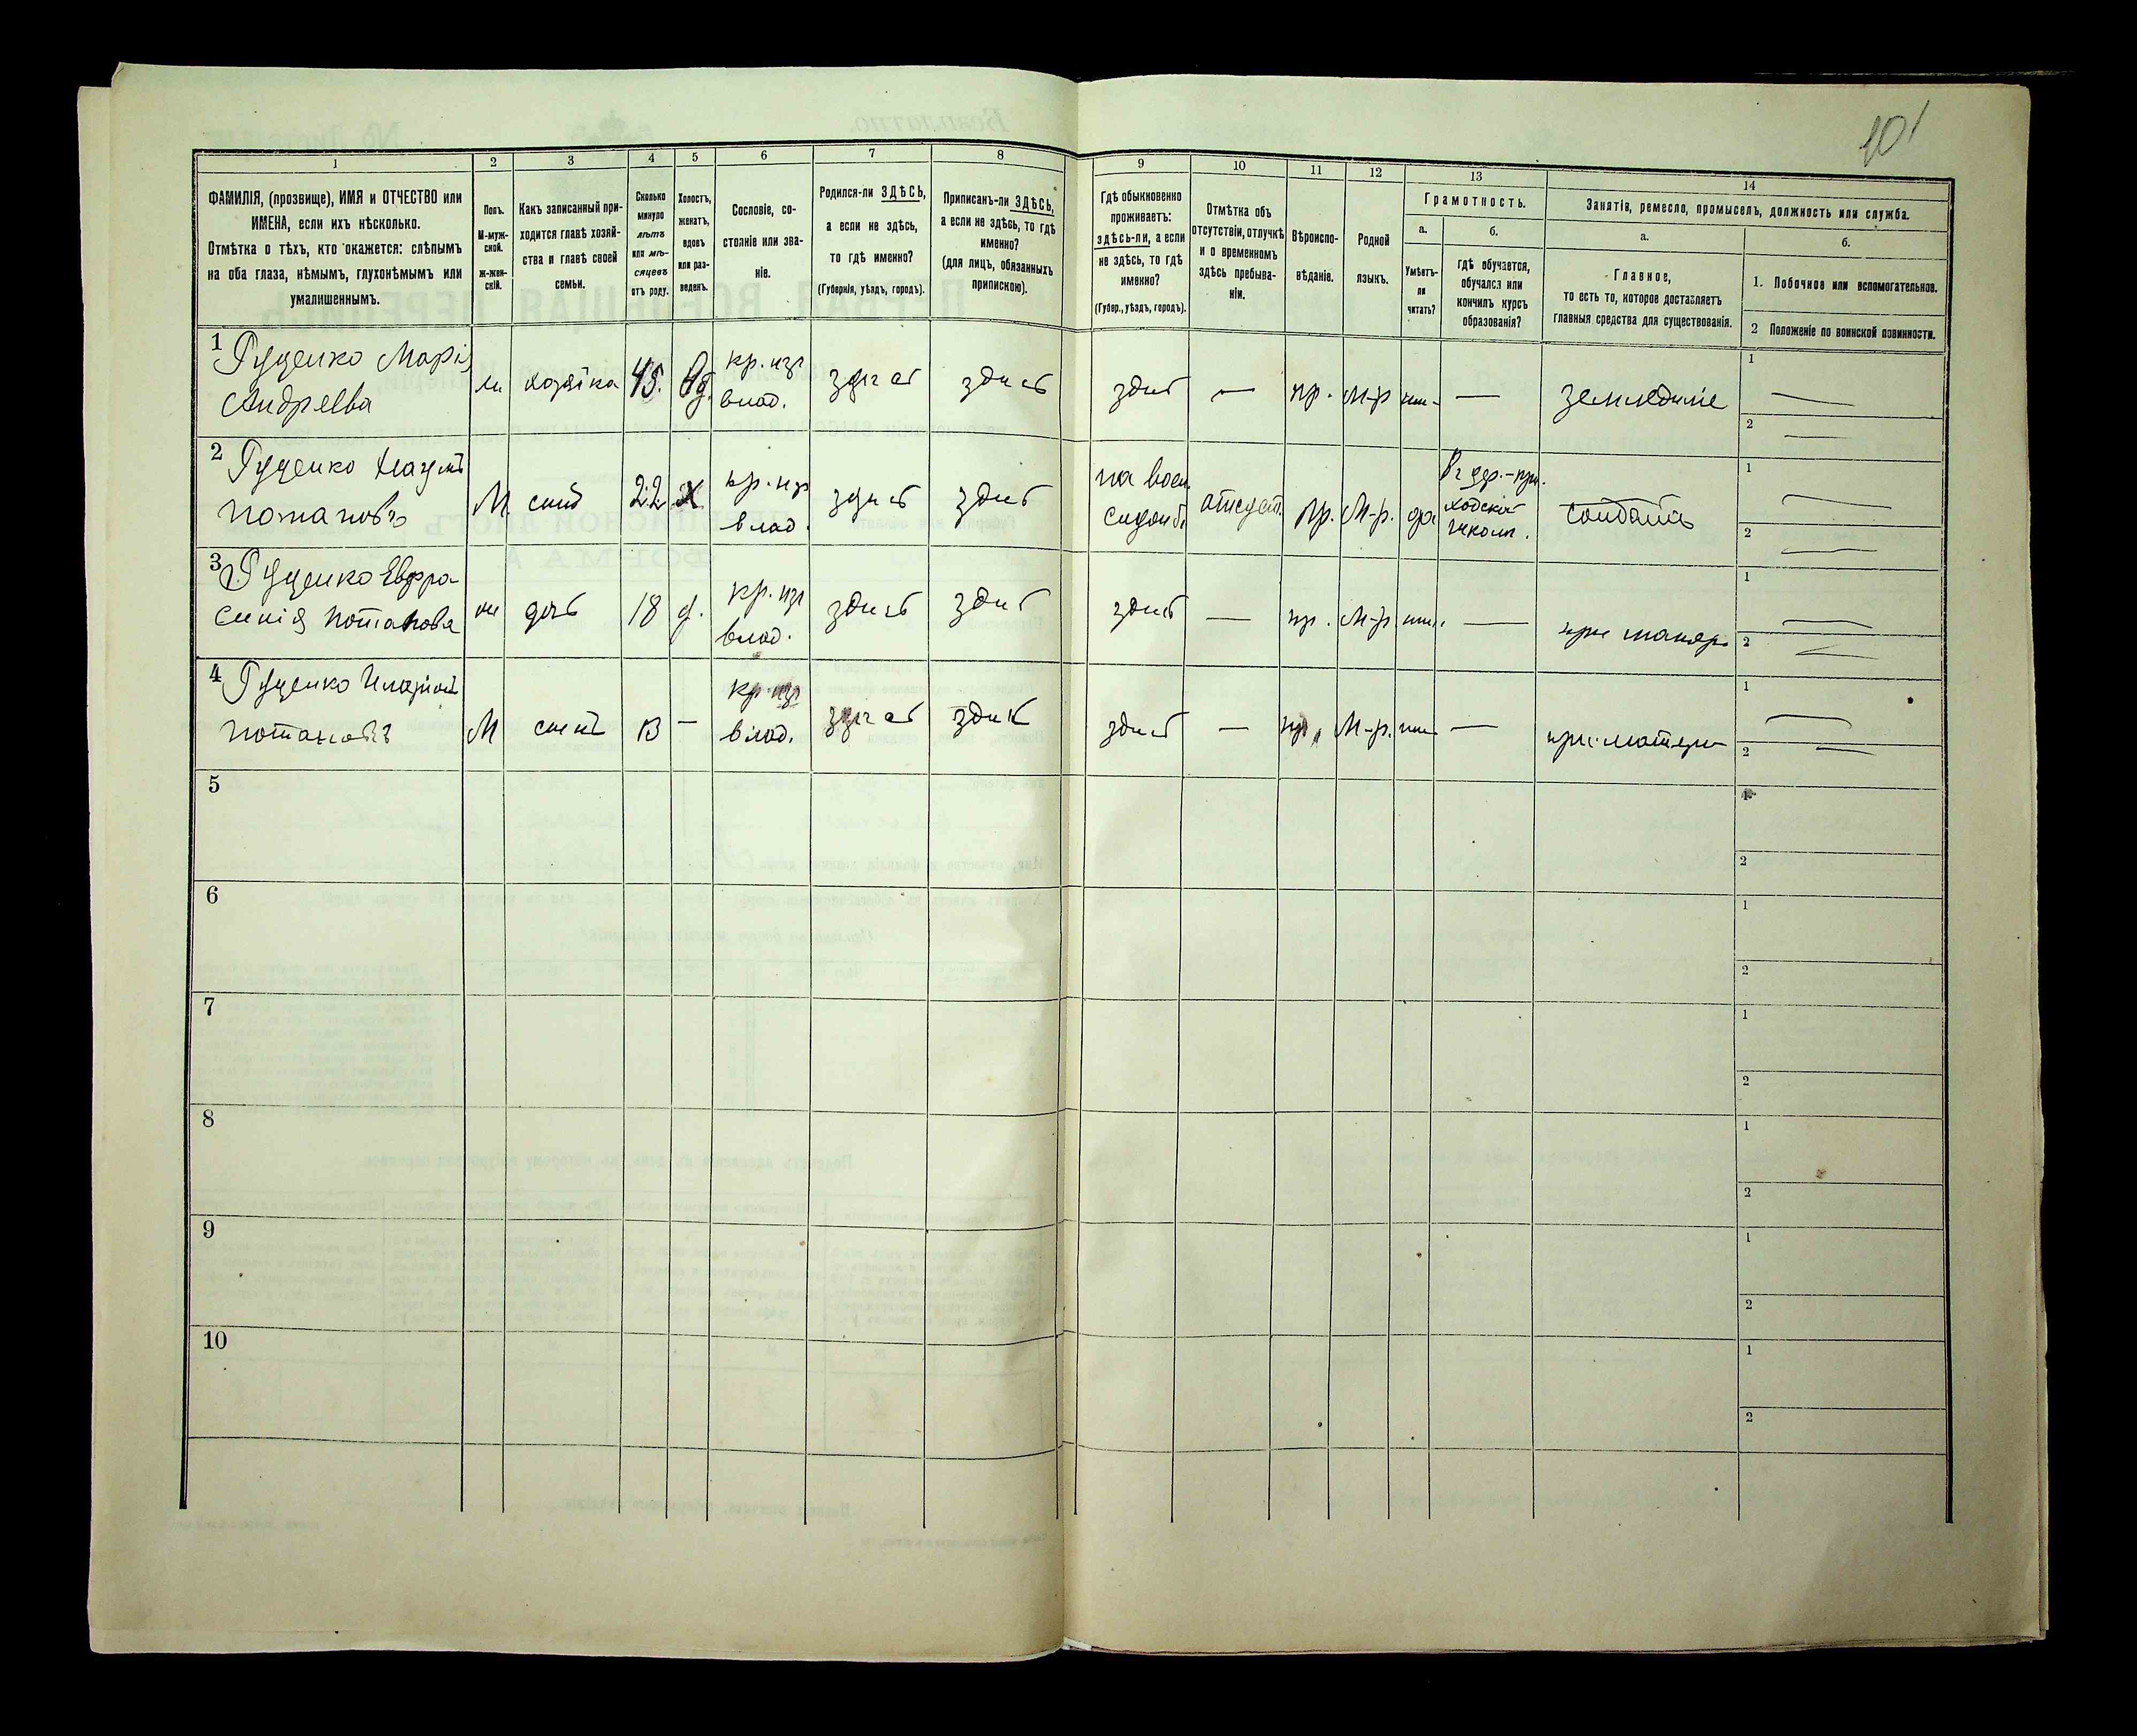 101
1
2
3
4
5
6
7
8
9
10
11
12
13
14
ФАМИЛІЯ, (прозвище), ИМЯ и ОТЧЕСТВО или
ИМЕНА, если ихъ нѣсколько.
Отмѣтка о тѣхъ, кто окажется: слѣпымъ
на оба глаза, нѣмымъ, глухонѣмымъ или
умалишеннымъ.
Полъ.
М-муж-
ской.
ж-жен-
скій.
Какъ записанный при-
ходится главѣ хозяй-
ства и главѣ своей
семьи.
Сколько
минуло
лѣтъ
или мѣ-
сяцевъ
отъ роду.
Холостъ,
женатъ,
вдовъ
или раз-
веденъ.
Сословіе, со-
стояніе или зва-
ніе.
Родился-ли ЗДѢСЬ,
а если не здѣсь,
то гдѣ именно?
(Губернія, уѣздъ, городъ).
Приписанъ-ли ЗДѢСЬ,
а если не здѣсь, то гдѣ
именно?
(для лицъ, обязанныхъ
припискою).
Гдѣ обыкновенно
проживаетъ:
здѣсь-ли, а если
не здѣсь, то гдѣ
именно?
(Губер., уѣздъ, городъ).
Отмѣтка объ
отсутствіи, отлучкѣ
и о временномъ
здѣсь пребыва-
ніи.
Вѣроиспо-
вѣданіе.
Родной
языкъ.
Грамотность.
а.
Умѣетъ-
ли
читать?
б.
гдѣ обучается,
обучался или
кончилъ курсъ
образованія?
Занятія, ремесло, промыселъ, должность или служба.
а.
Главное,
то есть то, которое доставляетъ
главныя средства для существованія.
б.
1. Побочное или вспомогательное.
2 Положеніе по воинской повинности.
1 Гуценко Марія
Андреева
хозяйка
45.
Вд.
кр. изъ
влад.
здѣсь
здѣсь
здѣсь
—
пр.
М-р
—
земледѣліе
1
2
2 Гуценко Наумъ
Потаповъ
М
сынъ
22
х
кр. изъ
влад.
здѣсь
здѣсь
на воен.
отсутст.
пр.
М-р.
да
школѣ.
солдатъ
1
2
3 Гуценко Евфро-
синія Потапова
дочь
18
д.
кр. изъ
влад.
здѣсь
здѣсь
здѣсь
—
пр.
М-р.
—
при матери
1
2
4 Гуценко Иларіонъ
Потаповъ
М
сынъ
13
—
кр. изъ
влад.
здѣсь
здѣсь
здѣсь
—
пр.
М-р.
—
при матери
1
2
5
1
2
6
1
2
7
1
2
8
1
2
9
1
2
10
1
2